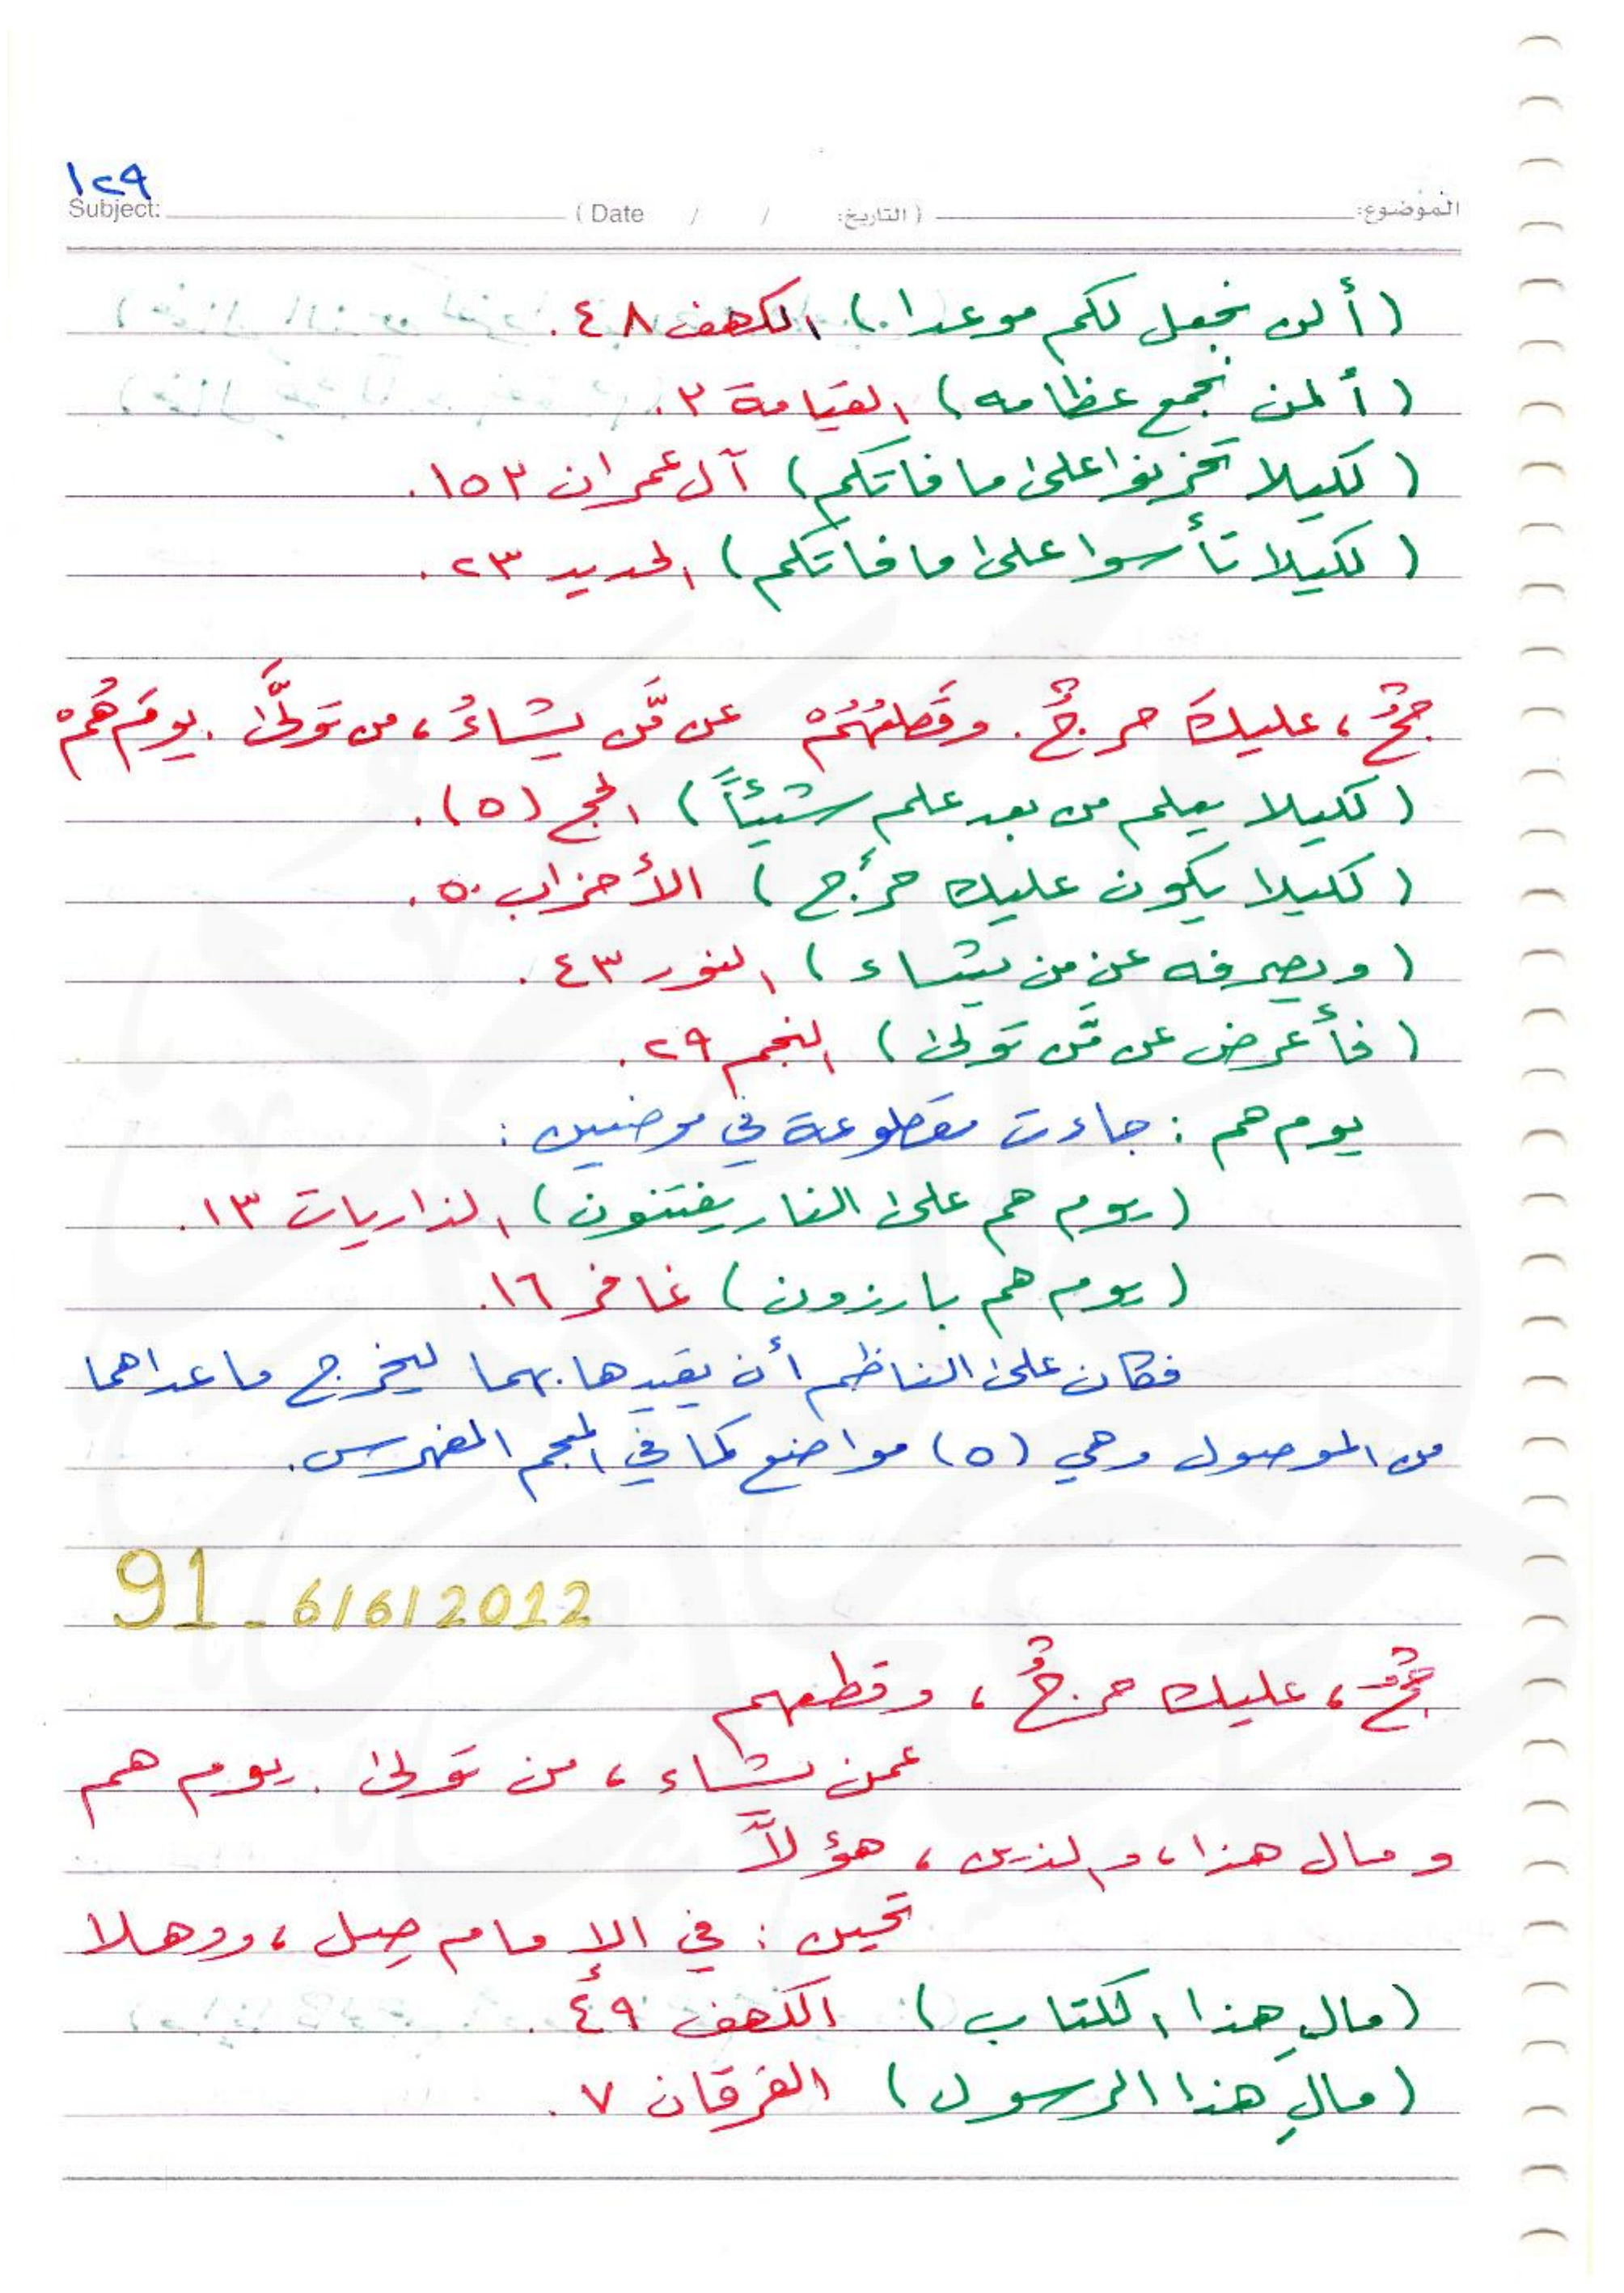 ١٢٩
الموضوع: (التاريخ: / / Date) Subject:
(ألن نجعل لكم موعدا.) الكهف ٤٨.
(ألن نجمع عظامه) القيامة ٣.
(لكيلا تحزنوا على ما فاتكم) آل عمران ١٥٣.
(لكيلا تأسوا على ما فاتكم) الحديد ٢٣.
حجٌّ، عليكَ حرجٌ. وقَطْعُهُمْ عن مَّن يشاءُ، من تَوَلَّىٰ. يومَ هُمْ
(لكيلا يعلم من بعد علم شيئاً) الحج (٥).
(لكيلا يكون عليك حرج) الأحزاب ٥٠.
(ويصرفه عن من يشاء) النور ٤٣.
(فأعرض عن مَّن تَولى) النجم ٢٩.
يوم هم : جاءت مقطوعة في موضعين :
(يوم هم على النار يفتنون) الذاريات ١٣.
(يوم هم بارزون) غافر ١٦.
فكان على الناظم أن يقيدها بهما ليخرج ما عداهما
من الموصول وهي (٥) مواضع كما في المعجم المفهرس.
91 - 6/6/2012
حجٌّ، عليك حرجٌ، وقطعهم
عمن يشاء، من تَولى. يوم هم
ومال هذا، والذين، هؤلاَّ
تحين : في الإمام صِل، ووهلا
(مالِ هذا الكتاب) الكهف ٤٩.
(مالِ هذا الرسول) الفرقان ٧.